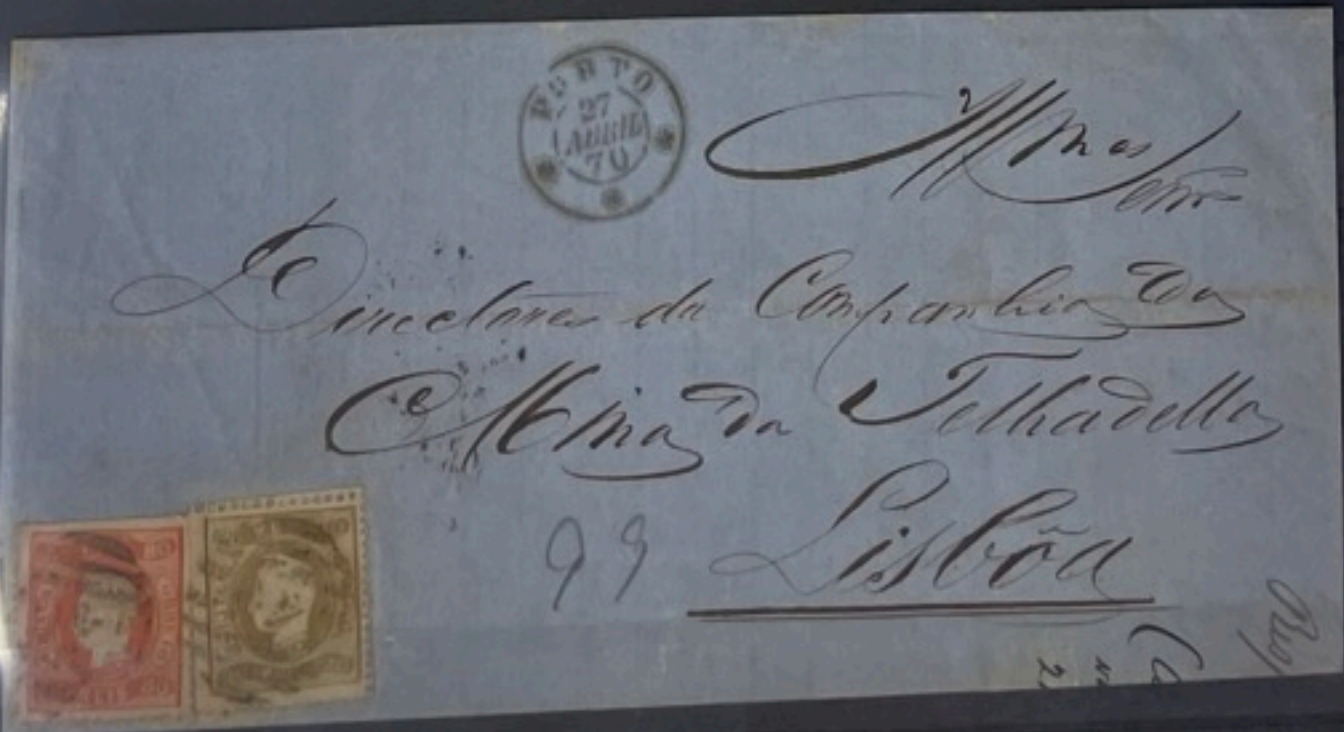 PORTO
27
ABRIL
70
Illmos
Senrs
Directores da Companhia da
Mina da Telhadella
Lisbôa
99